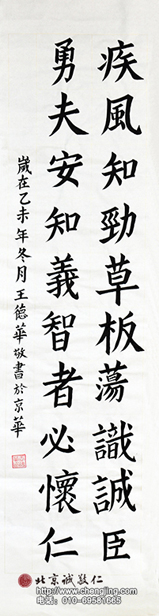 疾風知勁草板蕩識誠臣
勇夫安知義智者必懷仁
歲在乙未年冬月王德華敬書於京華
北京诚敬仁
www.chengjing.com
电话：010-69561665